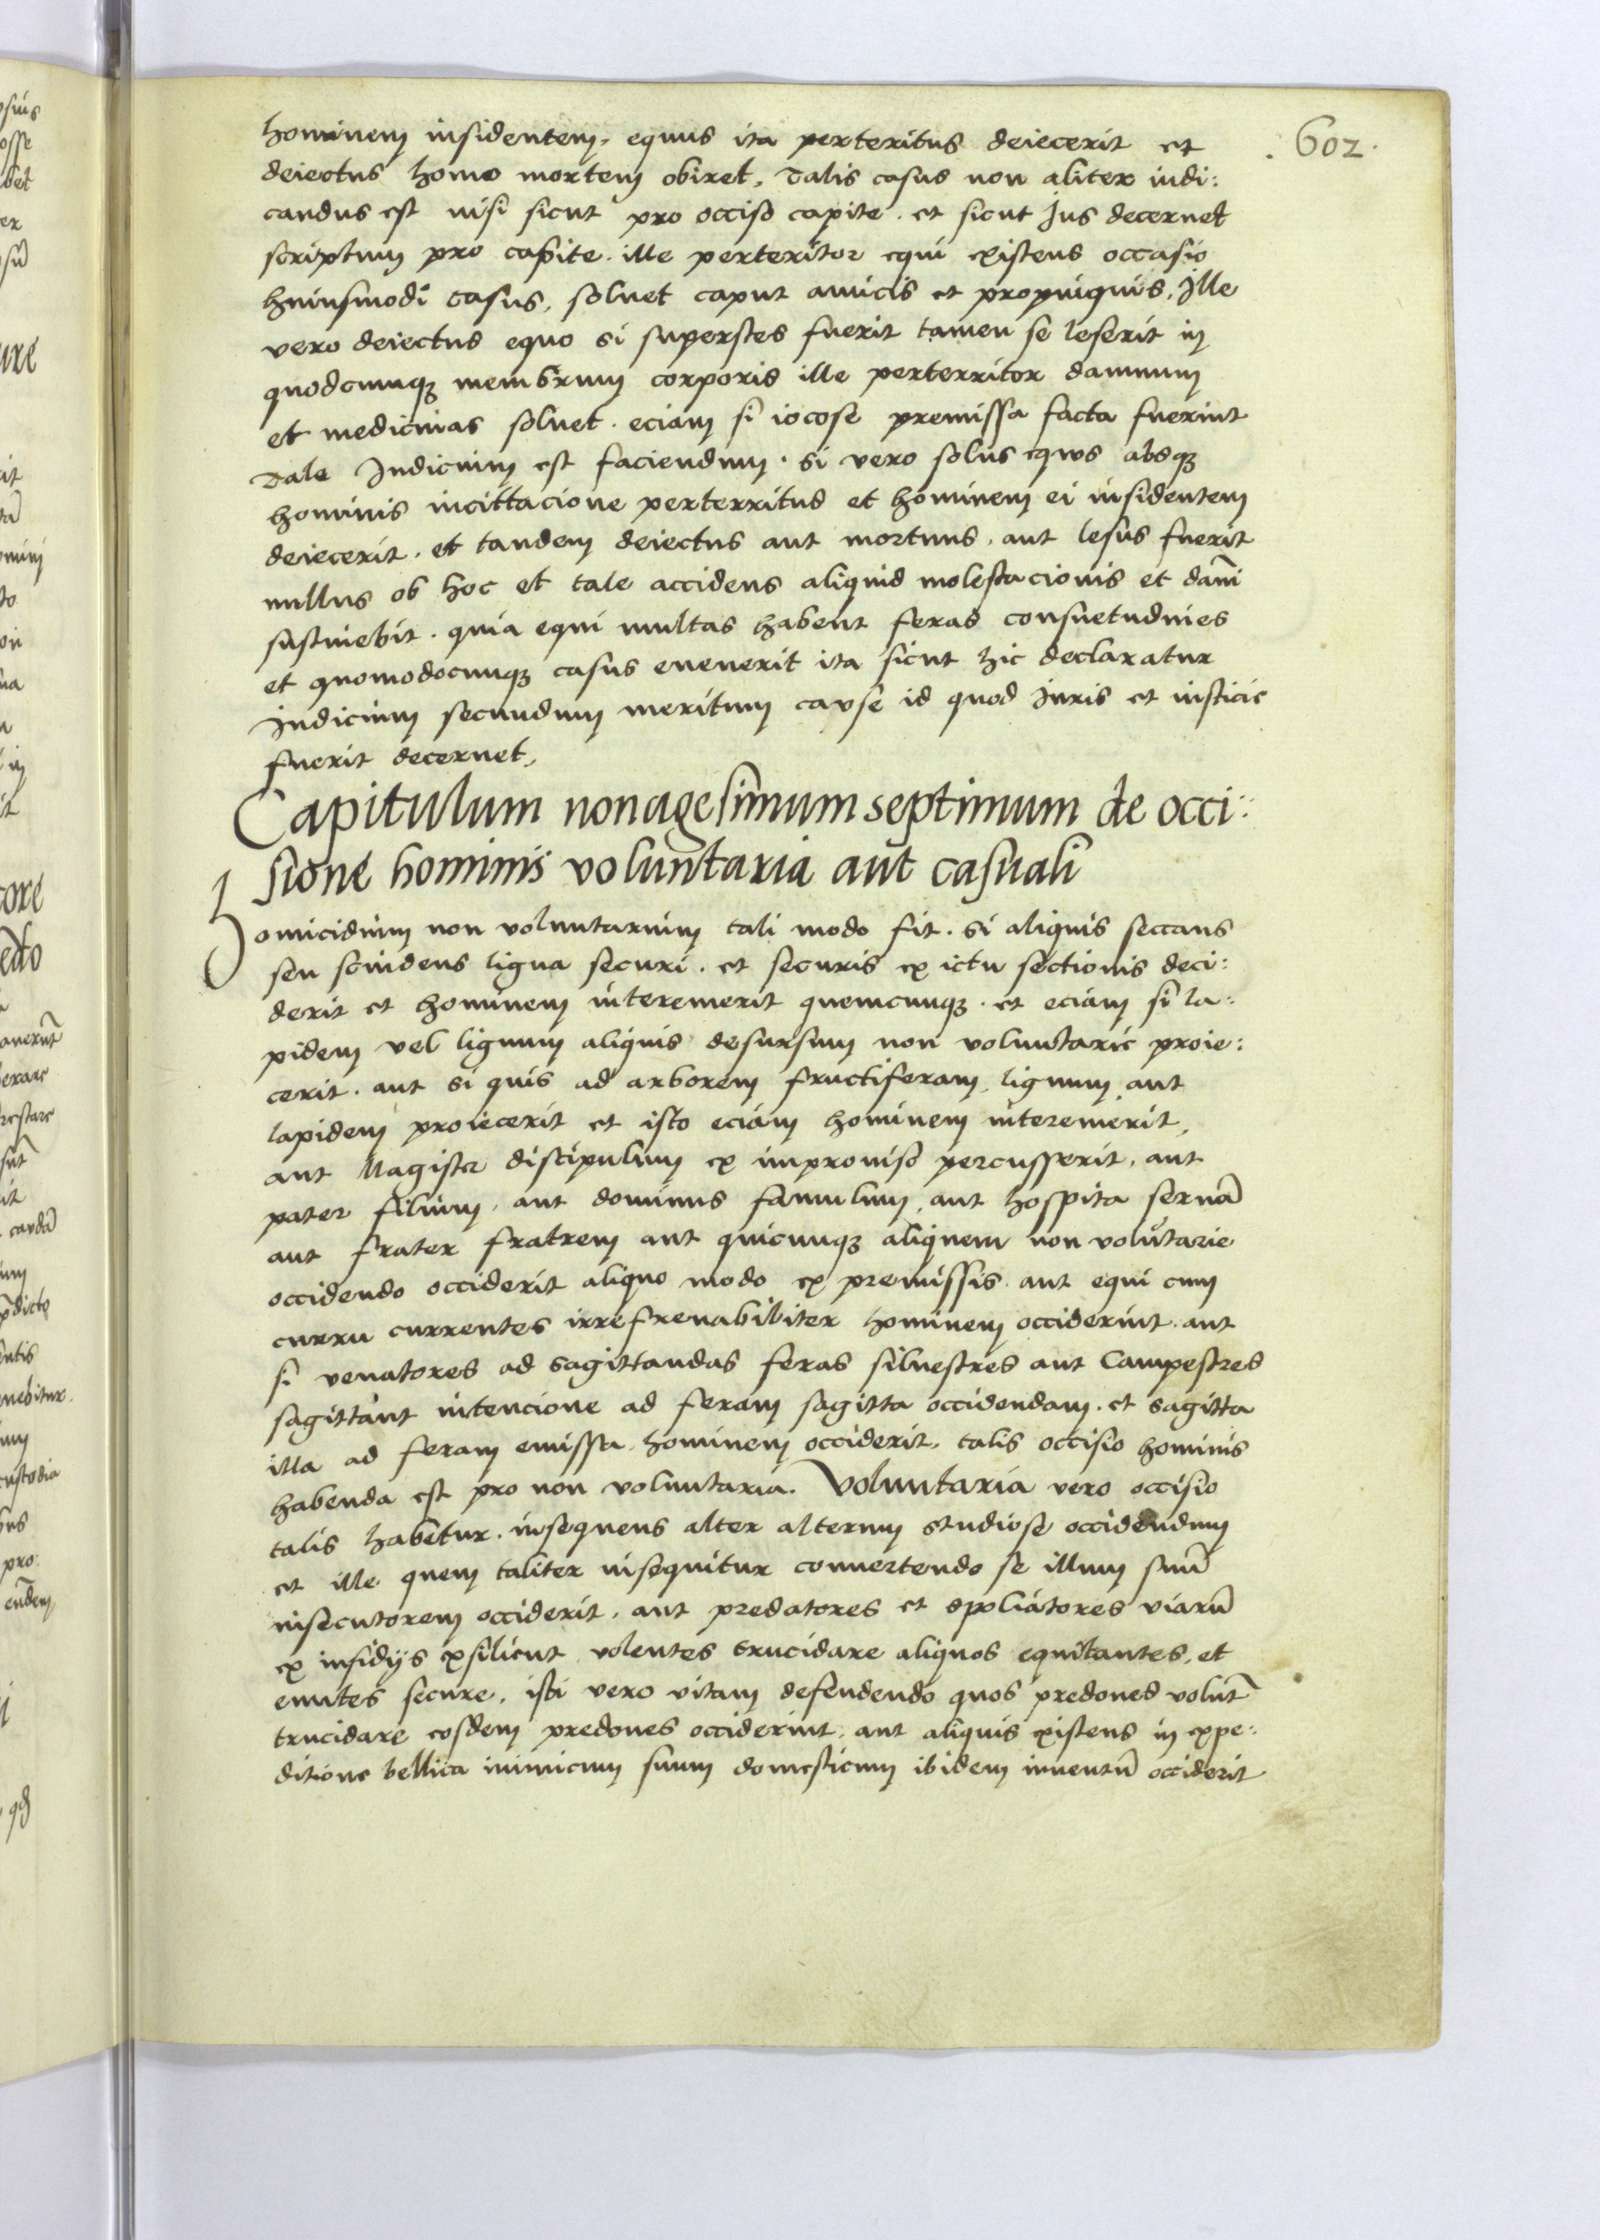 .602.
hominem insidentem, equus ita perteritus deiecerit et
deiectus homo mortem obiret, Talis casus non aliter iudi:
candus est nisi sicut pro occiso capite. et sicut Jus decernet
scriptum pro capite. ille perteritor equi existens occasio
huiusmodi casus, soluet caput amicis et propinquis, Ille
vero deiectus equo si superstes fuerit tamen se leserit in
quodcumq; membrum corporis ille perterritor damnum
et medicinas soluet. eciam si iocose premissa facta fuerint
Tale Judicium est faciendum. si vero solus equus absq;
hominis incittacione perterritus et hominem ei insidentem
deiecerit. et tandem deiectus aut mortuus, aut lesus fuerit
nullus ob hoc et tale accidens aliquid molestacionis et dañi
sustinebit. quia equi multas habent feras consuetudines
et quomodocunq; casus euenerit ita sicut hic declaratur
Judicium secundum meritum cause id quod Juris et iusticie
fuerit decernet,
Capitulum nonagesimum septimum de occi:
sione hominis voluntaria aut casuali
Homicidium non voluntarium tali modo fit. si aliquis seccans
seu scindens ligna securi. et securis ex ictu sectionis deci:
derit et hominem interemerit quemcunq;. et eciam si la:
pidem vel lignum aliquis desursum non voluntarie proie:
cerit. aut si quis ad arborem fructiferam lignum aut
lapidem proiecerit et isto eciam hominem interemerit,
aut Magister discipulum ex improuiso percusserit, aut
pater filium, aut dominus famulum, aut hospita seruā
aut frater fratrem aut quicunq; aliquem non volūtarie
occidendo occiderit aliquo modo ex premissis aut equi cum
curru currentes irrefrenabibiter hominem occiderint. aut
si venatores ad sagittandas feras siluestres aut Campestres
sagittant intencione ad feram sagitta occidendam. et sagitta
illa ad feram emissa hominem occiderit, talis occisio hominis
habenda est pro non voluntaria. Voluntaria vero occisio
talis habetur. insequens alter alterum studiose occidendum
et ille quem taliter insequitur conuertendo se illum suū
insecutorem occiderit, aut predatores et spoliatores viarū
ex insidijs exsilient volentes trucidare aliquos equitantes, et
eūntes secure, isti vero vitam defendendo quos predones volūt
trucidare eosdem predones occiderint, aut aliquis existens in expe:
ditione bellica inimicum suum domesticum ibidem inuentū occiderit